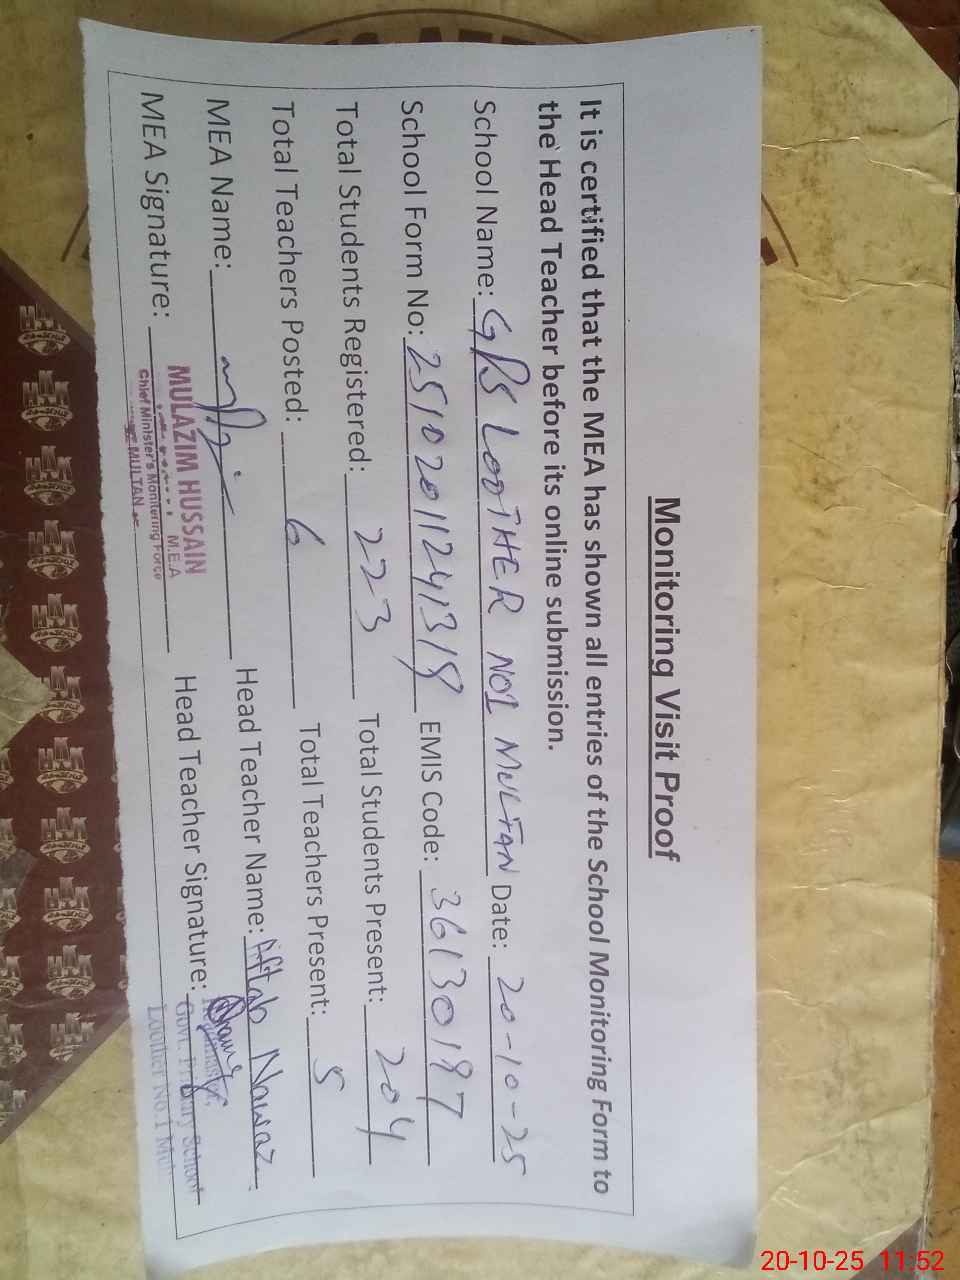 Monitoring Visit Proof
It is certified that the MEA has shown all entries of the School Monitoring Form to
the Head Teacher before its online submission.
School Name: GPS LOOTHER NO1 MULTAN Date: 20-10-25
School Form No: 25102011241319 EMIS Code: 36130197
Total Students Registered: 223 Total Students Present: 204
Total Teachers Posted: 6 Total Teachers Present: 5
MEA Name: Head Teacher Name: Aftab Nawaz
MEA Signature: Head Teacher Signature:
MULAZIM HUSSAIN
M.E.A
Chief Minister's Monitoring Force
MULTAN
Headmaster,
Govt. Primary School
Loother No.1
20-10-25 11:52